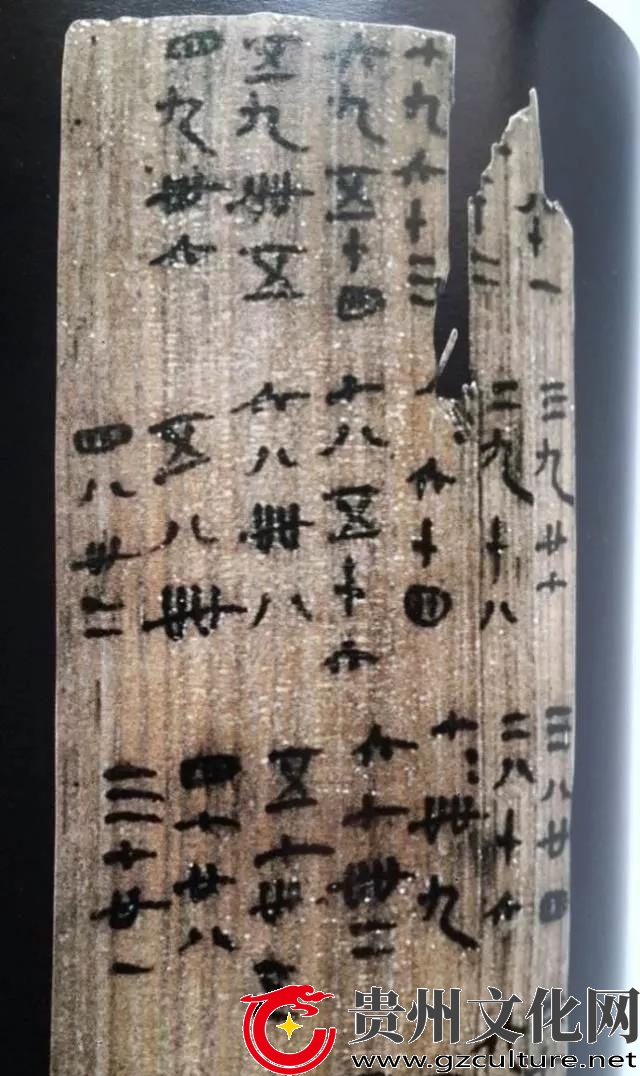 八十一
十二
七九六十三
六九五十四
五九卌五
四九卅六
三九廿七
二九十八
六十四
七八五十六
六八卌八
五八卌
四八卅二
三八廿四
二八十六
七七卌九
六七卌二
五七卅五
四七廿八
三七廿一
贵州文化网
www.gzculture.net